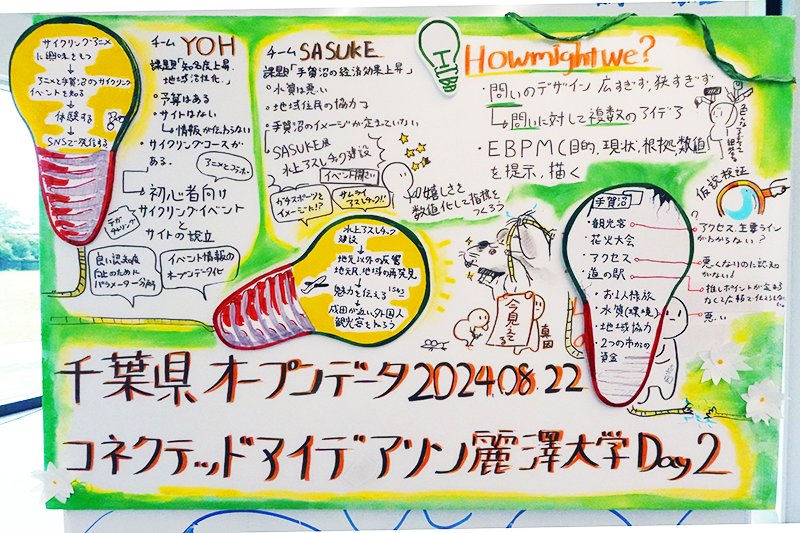 サイクリング・アニメ
に興味をもつ
アニメと手賀沼のサイクリング
イベントを知る
体験する
SNSで発信する
チーム YOH
課題「知名度上昇、
地域活性化」
・予算はある
・サイトはない
情報が伝わらない
・サイクリングコースが
ある.
アニメとコラボ
初心者向け
サイクリング・イベント
と
サイトの設立
良い認知度
向上のために
パラメーター分析
イベント情報の
オープンデータ化
チーム SASUKE
課題「手賀沼の経済効果上昇」
・水質は悪い
・地域住民の協力
・手賀沼のイメージが定まっていない
SASUKE風
水上アスレチック建設
イベント開さい
ガチスポーツを
イメージ!?
サムライ
アスレチック!!
嬉しさを
数値化して指標を
つくろう
水上アスレチック
建設
地元以外の反響
地元民、地域の再発見
魅力を伝える
成田が近い、外国人
観光客をとろう
How might we?
・問いのデザイン 広すぎず、狭すぎず
問いに対して複数のアイデア
・EBPM(目的、現状、根拠、数値)
を提示、描く
仮説検証
手賀沼
・観光客
・花火大会
・アクセス
・道の駅
・お1人様旅
・水質(環境)
・地域協力
・2つの市からの
資金
アクセス、主要ライン
がわからない?
悪い
今見えてる
真因
千葉県 オープンデータ 2024.08.22
コネクテッドアイデアソン 麗澤大学 Day 2